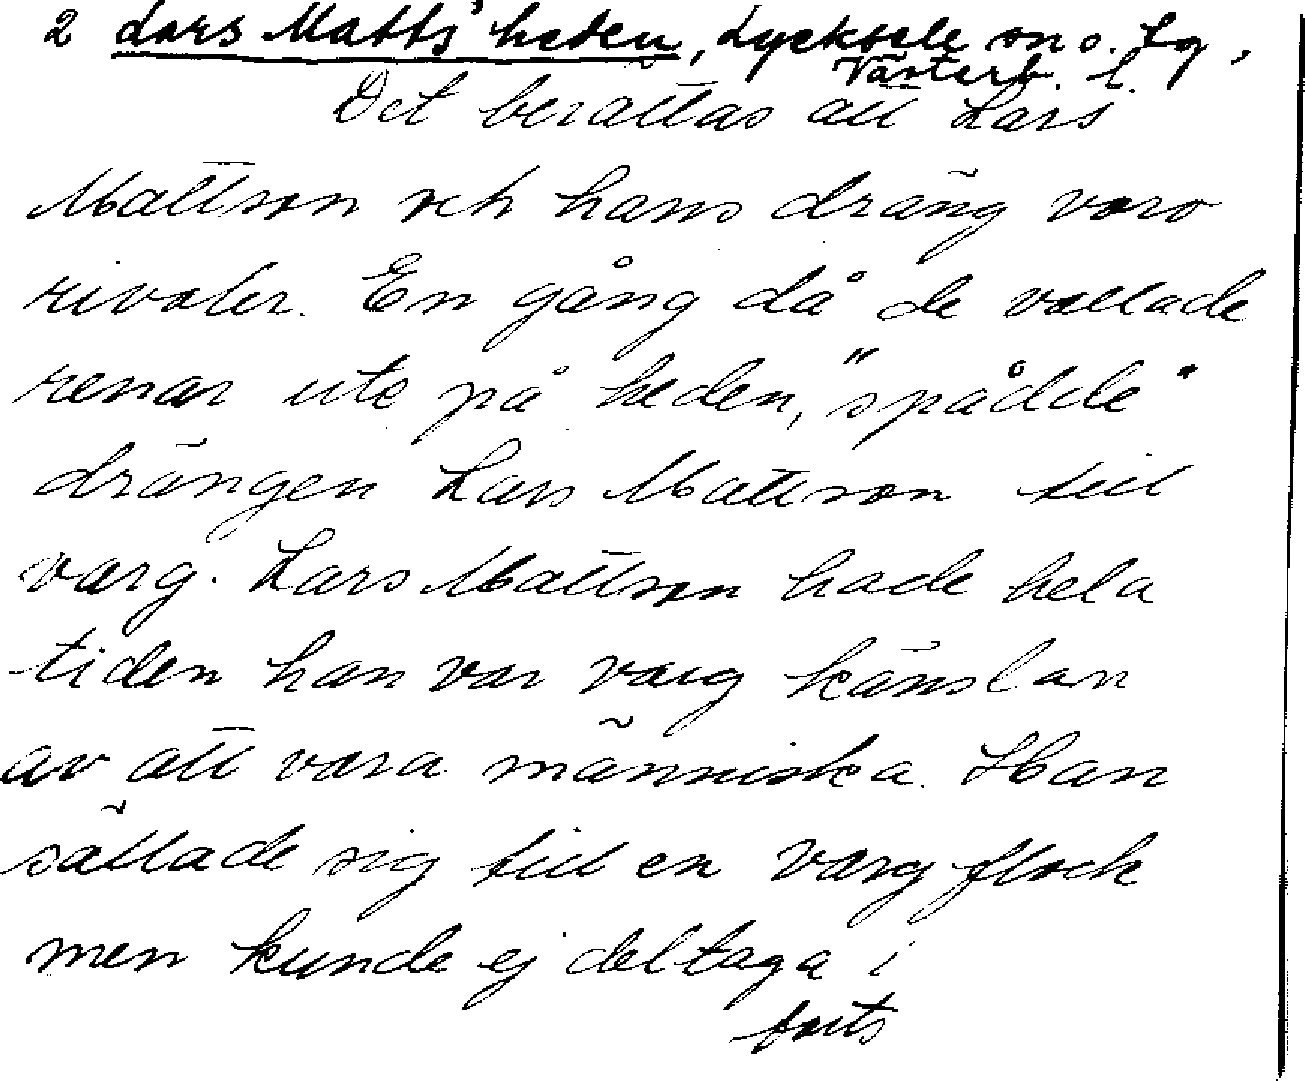 2 Lars Matts' heden, Lycksele sn o. Lg,
Västerb. l.
Det berättas att Lars
Mattson och hans dräng voro
rivaler. En gång då de vallade
renar ute på heden, "spådde"
drängen Lars Mattson till
varg. Lars Mattson hade hela
tiden han var varg känslan
av att vara människa. Han
sällade sig till en vargflock
men kunde ej deltaga i
forts